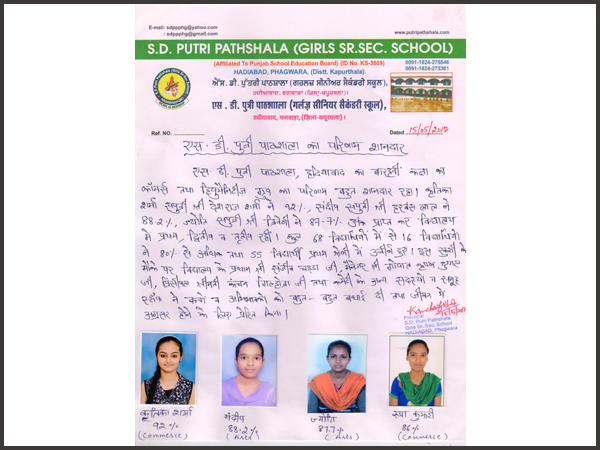 E-mail: sdppphg@yahoo.com
: sdppphg@gmail.com
www.putripathshala.com
S.D. PUTRI PATHSHALA (GIRLS SR.SEC. SCHOOL)
(Affiliated To Punjab School Education Board) (ID No. KS-3809)
HADIABAD, PHAGWARA, (Distt. Kapurthala).
0091-1824-276546
0091-1824-275361
ਐੱਸ. ਡੀ. ਪੁੱਤਰੀ ਪਾਠਸ਼ਾਲਾ (ਗਰਲਜ਼ ਸੀਨੀਅਰ ਸੈਕੰਡਰੀ ਸਕੂਲ),
ਹਦੀਆਬਾਦ, ਫਗਵਾੜਾ (ਜ਼ਿਲ੍ਹਾ-ਕਪੂਰਥਲਾ)।
एस. डी. पुत्री पाठशाला (गर्लज़ सीनियर सैकंडरी स्कूल),
हदीयाबाद, फगवाड़ा, (ज़िला-कपूरथला)।
Ref. NO.
Dated 15/05/2017
एस. डी. पुत्री पाठशाला का परिणाम शानदार
एस. डी. पुत्री पाठशाला, हदियाबाद का बारहवीं कक्षा का
कॉमर्स तथा हियुमैनिटीज़ ग्रुप का परिणाम बहुत शानदार रहा। कृतिका
शर्मा सपुत्री श्री देशराज शर्मा ने 92%, संदीप सपुत्री श्री हरबंस लाल ने
88.2%, ज्योति सपुत्री श्री त्रिवेणी ने 87.7% अंक प्राप्त कर विद्यालय
में प्रथम, द्वितीय व तृतीय रहीं। कुल 68 विद्यार्थियों में से 16 विद्यार्थियों
ने 80% से अधिक तथा 55 विद्यार्थी प्रथम श्रेणी में उत्तीर्ण हुए। इस खुशी के
मौके पर विद्यालय के प्रधान श्री चड्ढा जी, मैनेजर श्री गोपाल कृष्ण
जी, प्रिंसीपल श्रीमती कंचन जी तथा कमेटी के अन्य सदस्यों व समूह
स्टॉफ ने बच्चों व अभिभावकों को बहुत-बहुत बधाई दी तथा जीवन में
अग्रसर होने के लिए प्रेरित किया।
Principal
S.D. Putri Pathshala
Girls Sr. Sec. School
HADIABAD, Phagwara
कृतिका शर्मा
92%
(Commerce)
संदीप
88.2%
(Arts)
ज्योति
87.7%
(Arts)
रूपा कुमारी
86%
(Commerce)